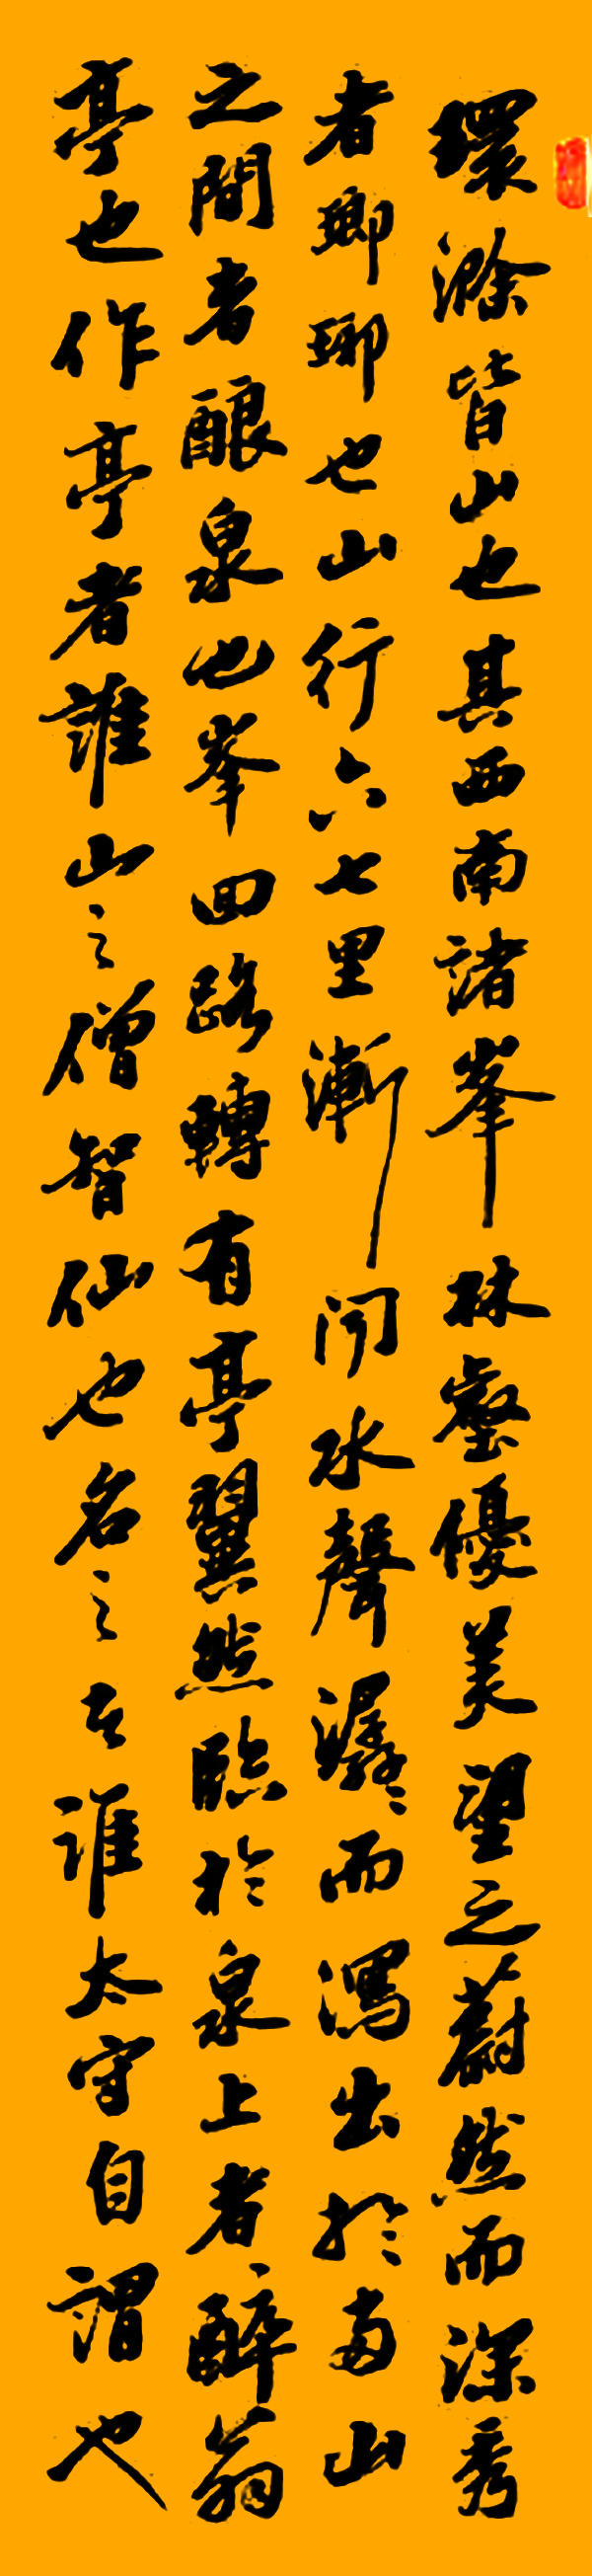 環滁皆山也其西南諸峯林壑優美望之蔚然而深秀
者瑯琊也山行六七里漸聞水聲潺〻而瀉出於两山
之間者酿泉也峯回路轉有亭翼然臨於泉上者醉翁
亭也作亭者誰山之僧智仙也名之者誰太守自謂也